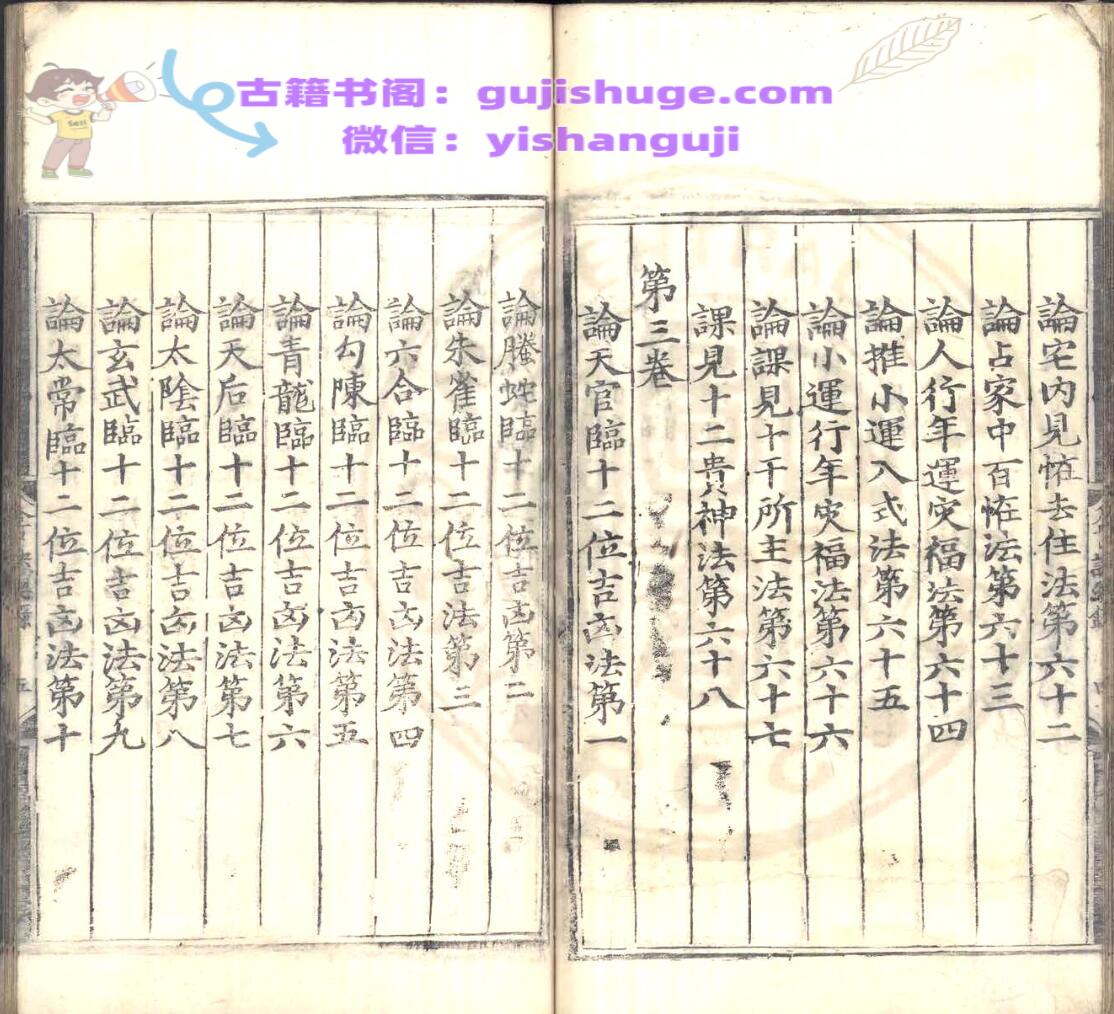 古籍书阁：gujishuge.com
微信：yishanguji
Sell
論宅内見恠去住法第六十二
論占家中百恠法第六十三
論人行年運灾福法第六十四
論推小運入式法第六十五
論小運行年灾福法第六十六
論課見十干所主法第六十七
課見十二貴神法第六十八
第三卷
論天官臨十二位吉凶法第一
論螣蛇臨十二位吉凶第二
論朱雀臨十二位吉法第三
論六合臨十二位吉凶法第四
論勾陳臨十二位吉凶法第五
論青龍臨十二位吉凶法第六
論天后臨十二位吉凶法第七
論太陰臨十二位吉凶法第八
論玄武臨十二位吉凶法第九
論太常臨十二位吉凶法第十